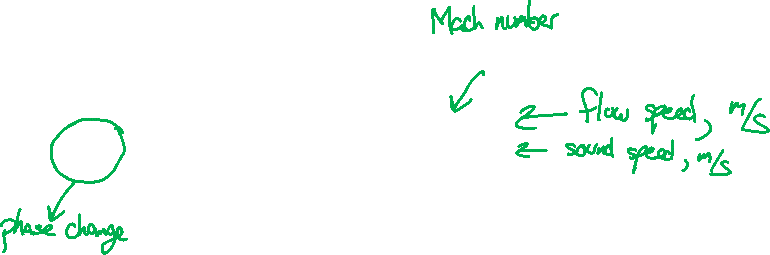 Mach number
flow speed, m/s
sound speed, m/s
phase change